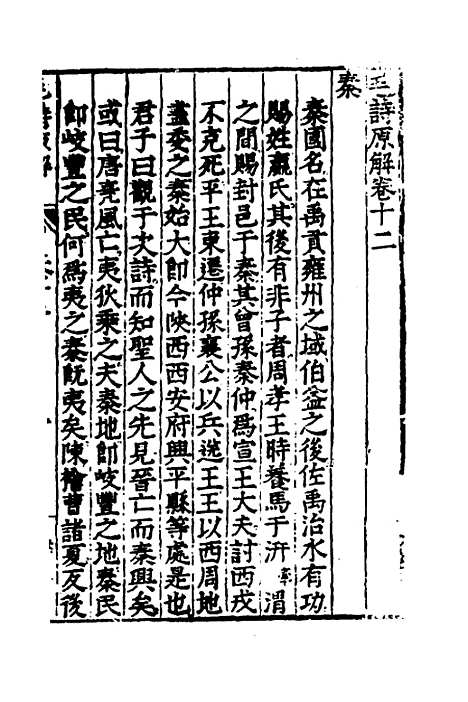 毛詩原解卷十二
秦
秦國名在禹貢雍州之域伯益之後佐禹治水有功
賜姓嬴氏其後有非子者周孝王時養馬于汧渭
之間賜封邑于秦其曾孫秦仲為宣王大夫討西戎
不克死平王東遷仲孫襄公以兵送王王以西周地
盡委之秦始大即今陝西西安府興平縣等處是也
君子曰觀于次詩而知聖人之先見晉亡而秦興矣
或曰唐堯風亡夷狄乘之夫秦地即岐豐之地秦民
即岐豐之民何為夷之秦旣夷矣陳檜曹諸夏反後